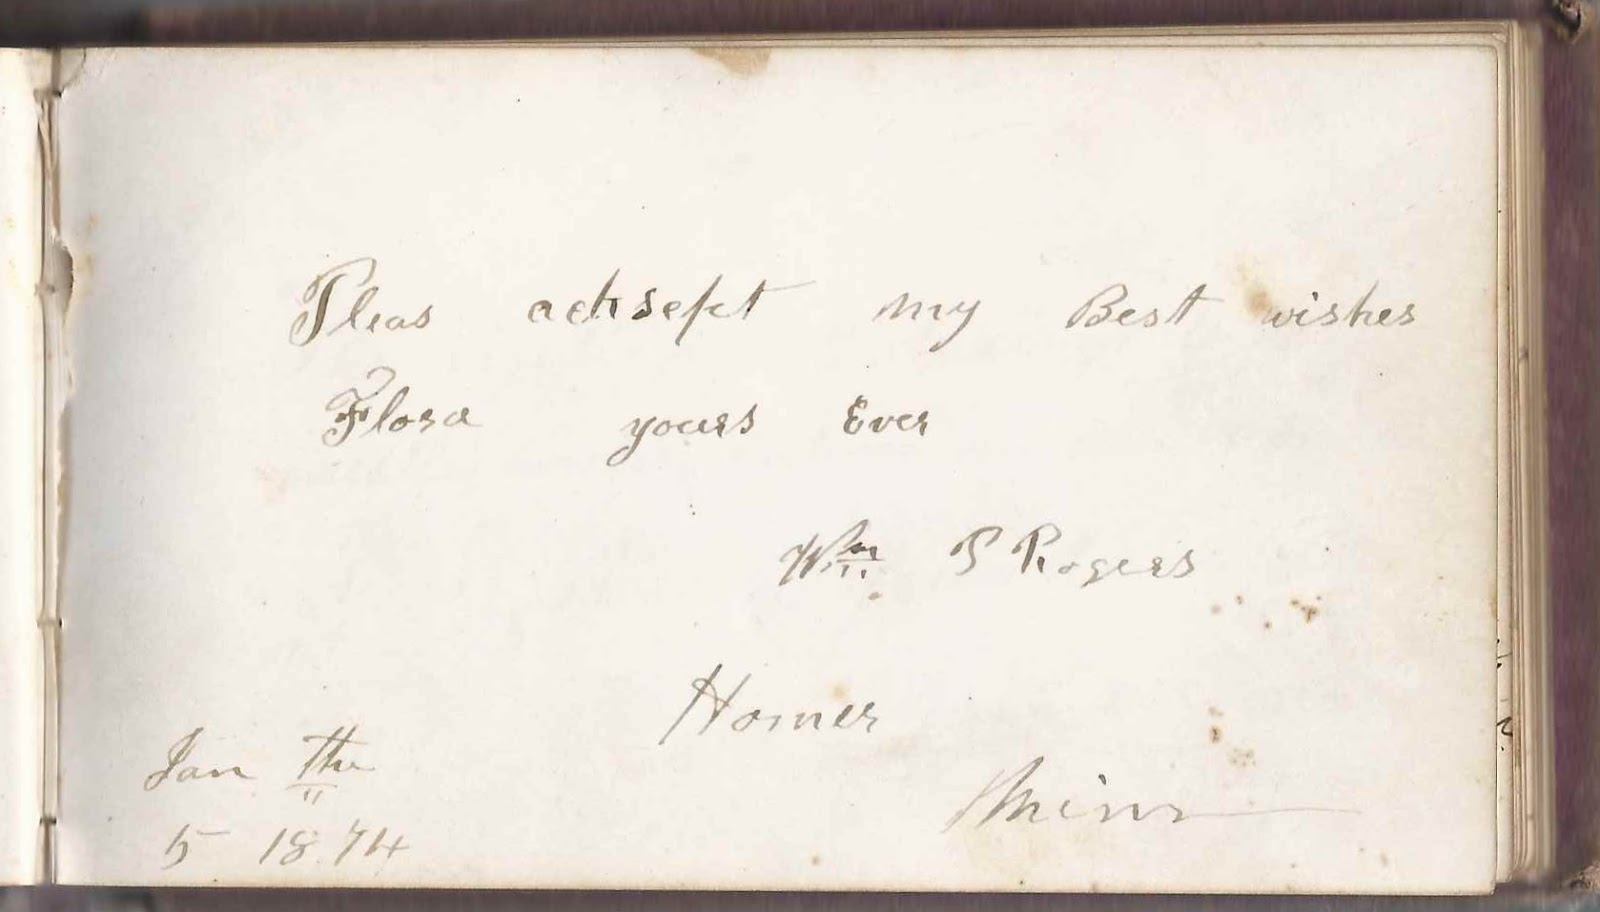 Pleas acksept my Best wishes
Flora yours Ever
Wm P Rogers
Homer
Minn
Jan the
5 1874